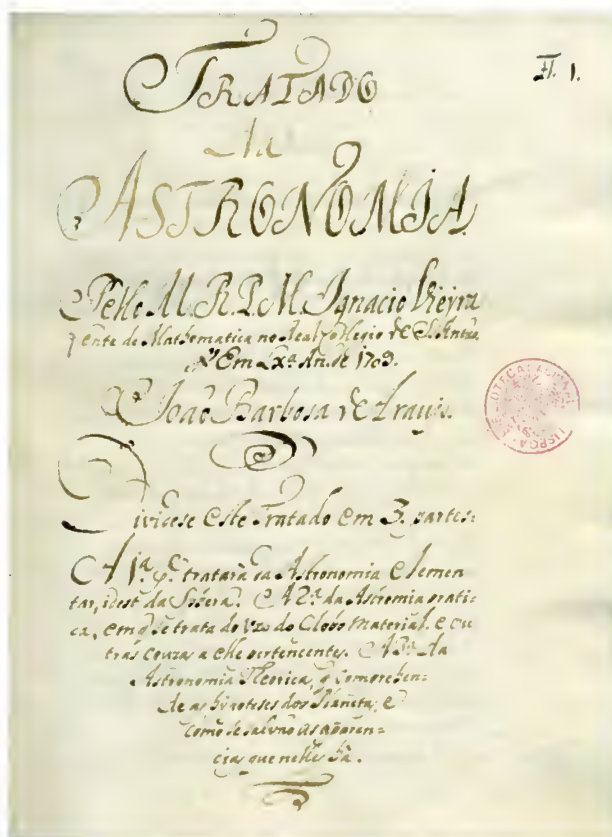 Fl. 1.
TRATADO
da
ASTRONOMIA.
Pello M. R. P. M. Ignacio Vieyra
Lente de Mathematica no Real Collegio de S. Antão,
Em Lxª An. de 1709.
João Barbosa de Araujo.
Dividese este Tratado em 3. partes:
A 1ª. q̃ tratarà da Astronomia elemen
tar, idest da Sfera. A 2ª. da Astromia prati
ca, em q̃ se trata do uzo do Globo material. e ou
tras couzas a elle pertencentes. A 3ª. da
Astronomia Theorica, q̃ comprehen:
de as hypoteses dos Planetas, e
como se salvão as aparen:
cias que nelles hà.
LISBOA